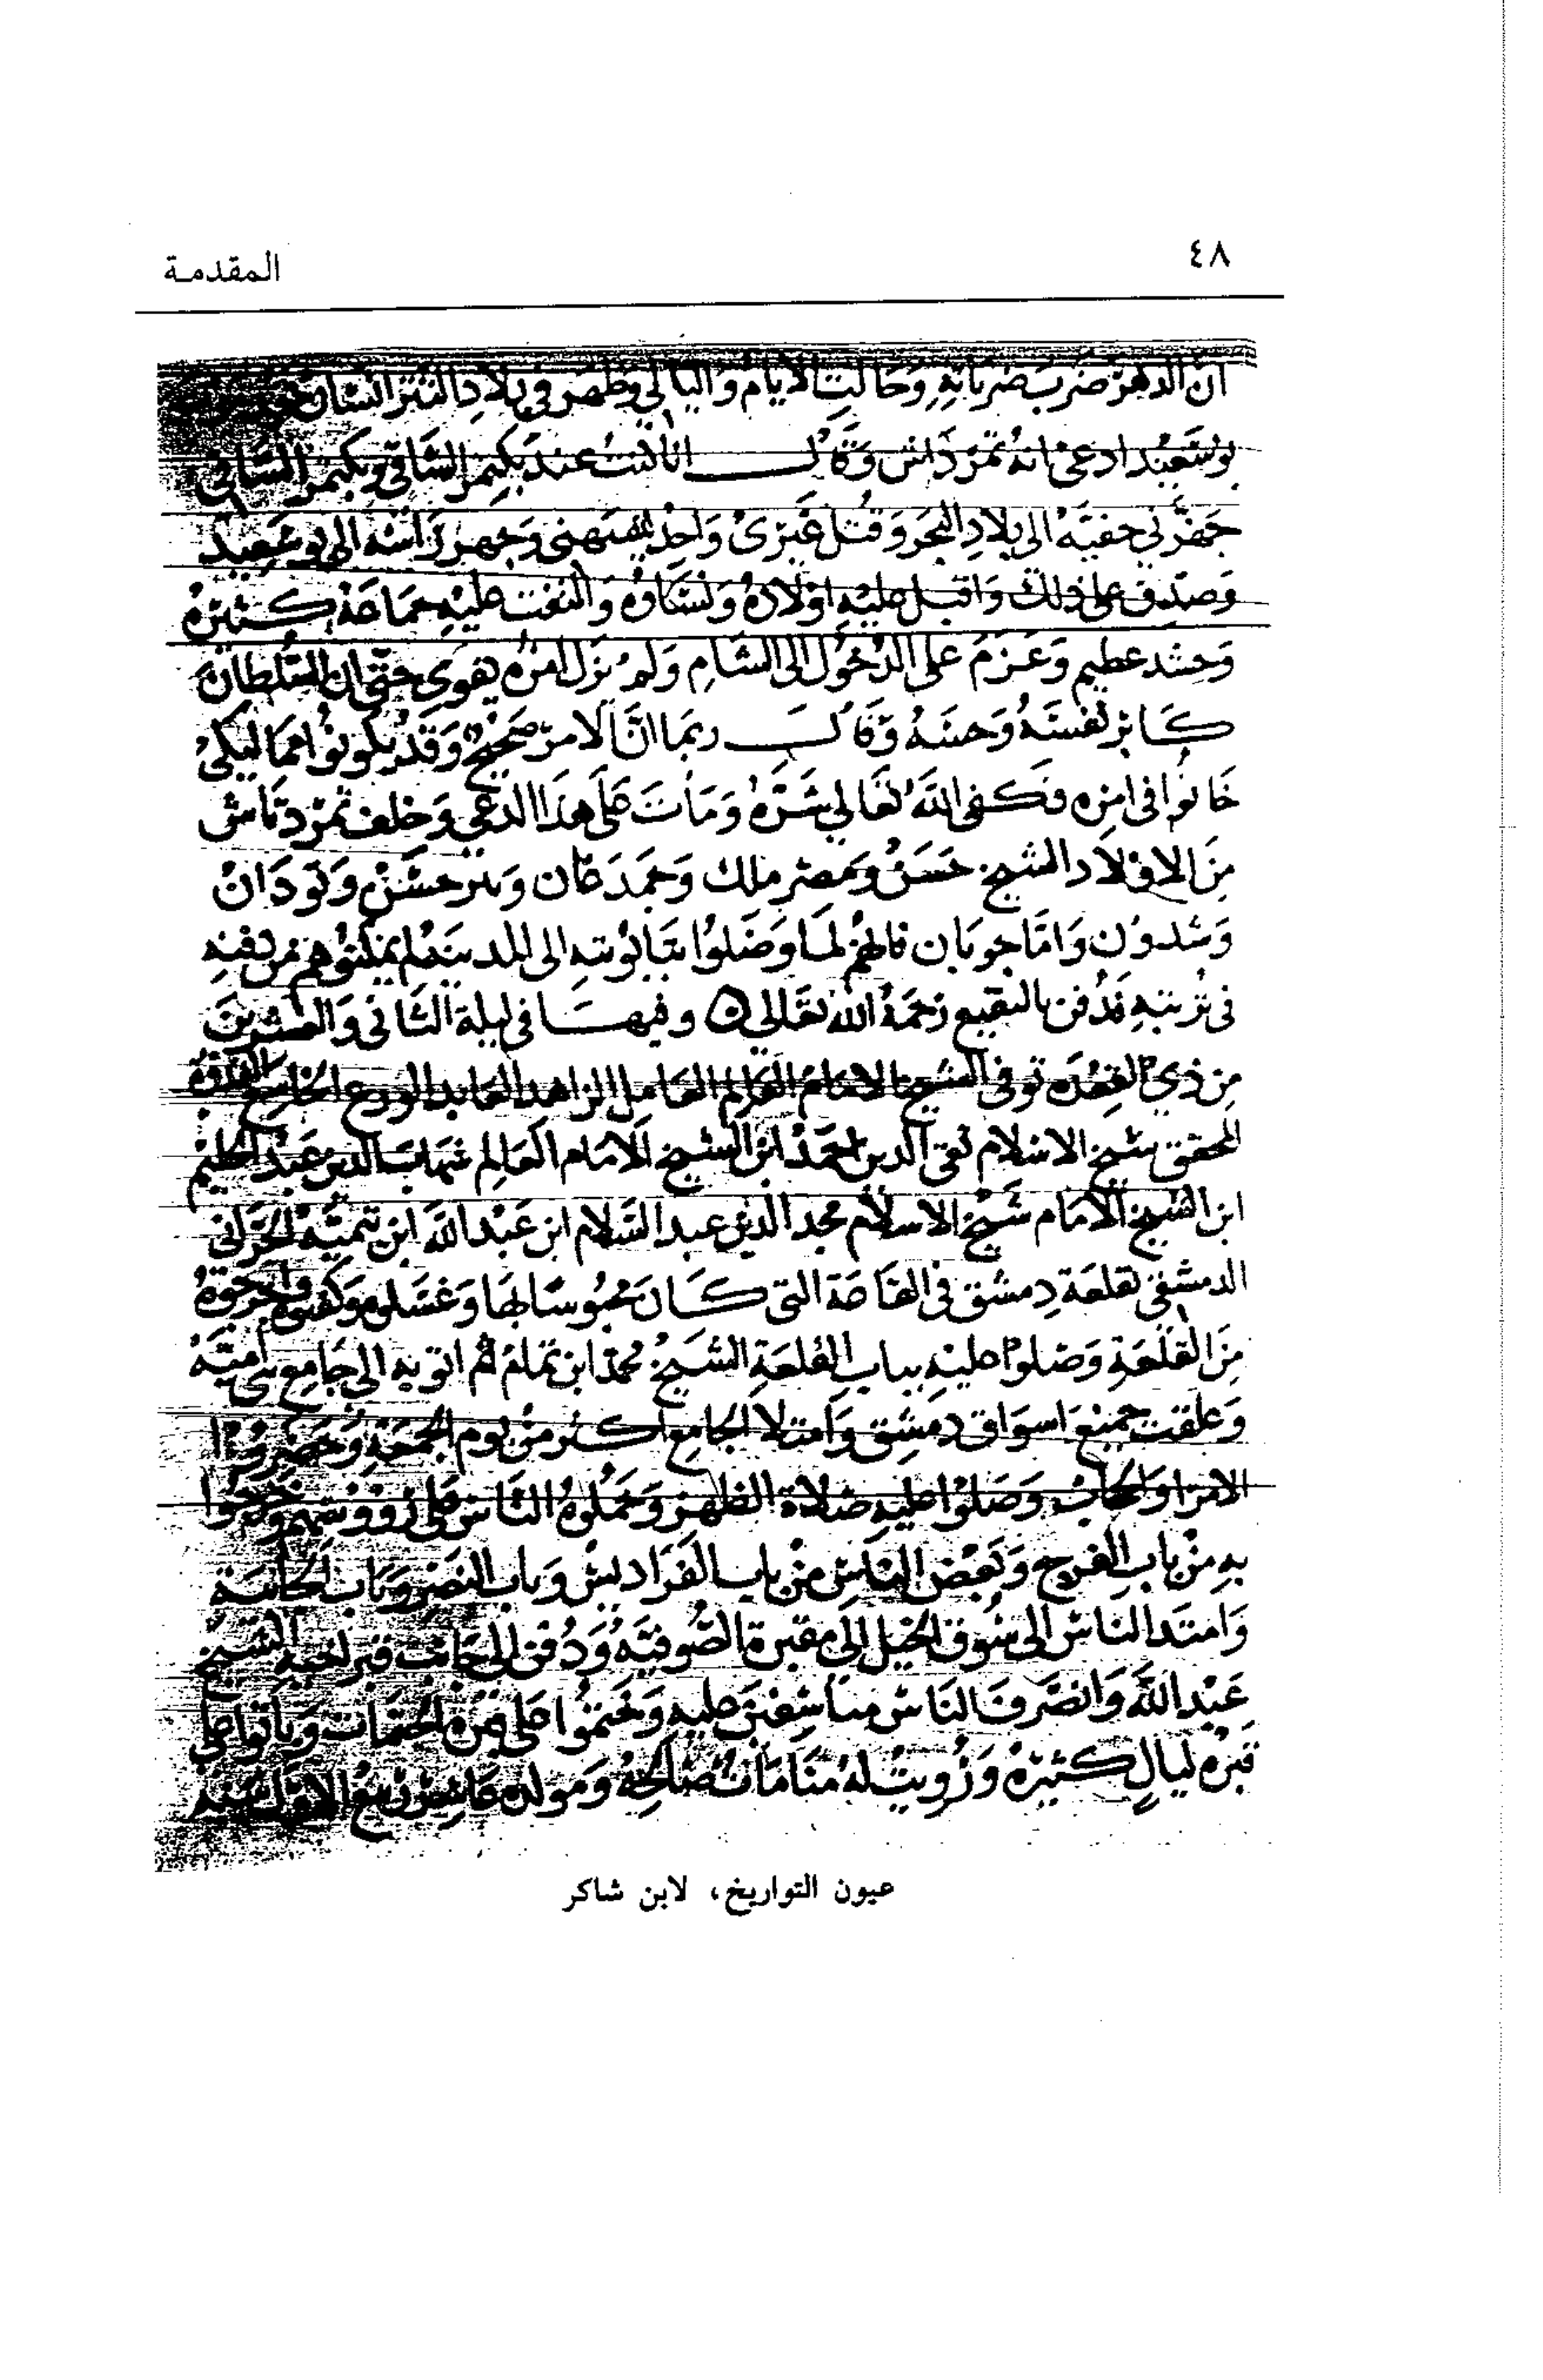 ٤٨
المقدمة
ان الدهر ضرب ضرباته وحالت الايام والليالي وظهر في بلاد التتر انسان
بوسعيد ادعى انه تمرداش وقال انا كنت عند بكتمر الساقي وبكتمر الساقي
جهزني خفيه الى بلاد البحر وقتل غيرى واحد يشبهني وجهز راسه الى بوسعيد
وصدق على ذلك واقبل عليه اولاده ونساوه والتفت عليه جماعة كثيره
وحشد عظيم وعزم على الدخول الى الشام ولم يزل امره يقوى حتى ان السلطان
كابر نفسه وحسه وقال ربما ان الامر صحيح وقد يكونوا مماليكي
خانوا في امره فكفى الله تعالي شره ومات على هذا الدعي وخلف تمرد تاش
من الاولاد الشيخ حسن ومصر ملك وجمدغان وبير حسن وتودان
وشدون واما جوبان فانهم لما وصلوا بتابوته الى المدينة لم يمكنوهم من دفنه
في تربته فدفن بالبقيع رحمة الله تعالي ه وفيها في ليلة الثاني والعشرين
من ذي القعده توفى الشيخ الامام العالم العامل الزاهد العابد الورع الخاشع القدوه
المحقق شيخ الاسلام تقى الدين احمد ابن الشيخ الامام العالم شهاب الدين عبد الحليم
ابن الشيخ الامام شيخ الاسلام مجد الدين عبد السلام ابن عبد الله ابن تيميه الحراني
الدمشقي بقلعة دمشق في القاعة التي كان محبوسا بها وغسلوه وكفنوه واخرجوه
من القلعة وصلوا عليه بباب القلعة الشيخ محمد ابن تمام ثم اتو به الى جامع بني اميه
وغلقت جميع اسواق دمشق وامتلا الجامع اكثر من يوم الجمعة وحضروا
الامرا والحجاب وصلوا عليه صلاة الظهر وحملوه الناس على رووسهم وخرجوا
به من باب الفرج وبعض الناس من باب الفراديس وباب النصر وباب الجابية
وامتد الناس الى سوق الخيل الى مقبرة الصوفيه ودفن الى جانب قبر اخيه الشيخ
عبد الله وانصرف الناس متاسفين عليه وختموا على قبره الختمات وباتوا على
قبره ليال كثيره ورويت له منامات صالحه ومولده عاشر ربيع الاول سنة
عيون التواريخ، لابن شاكر